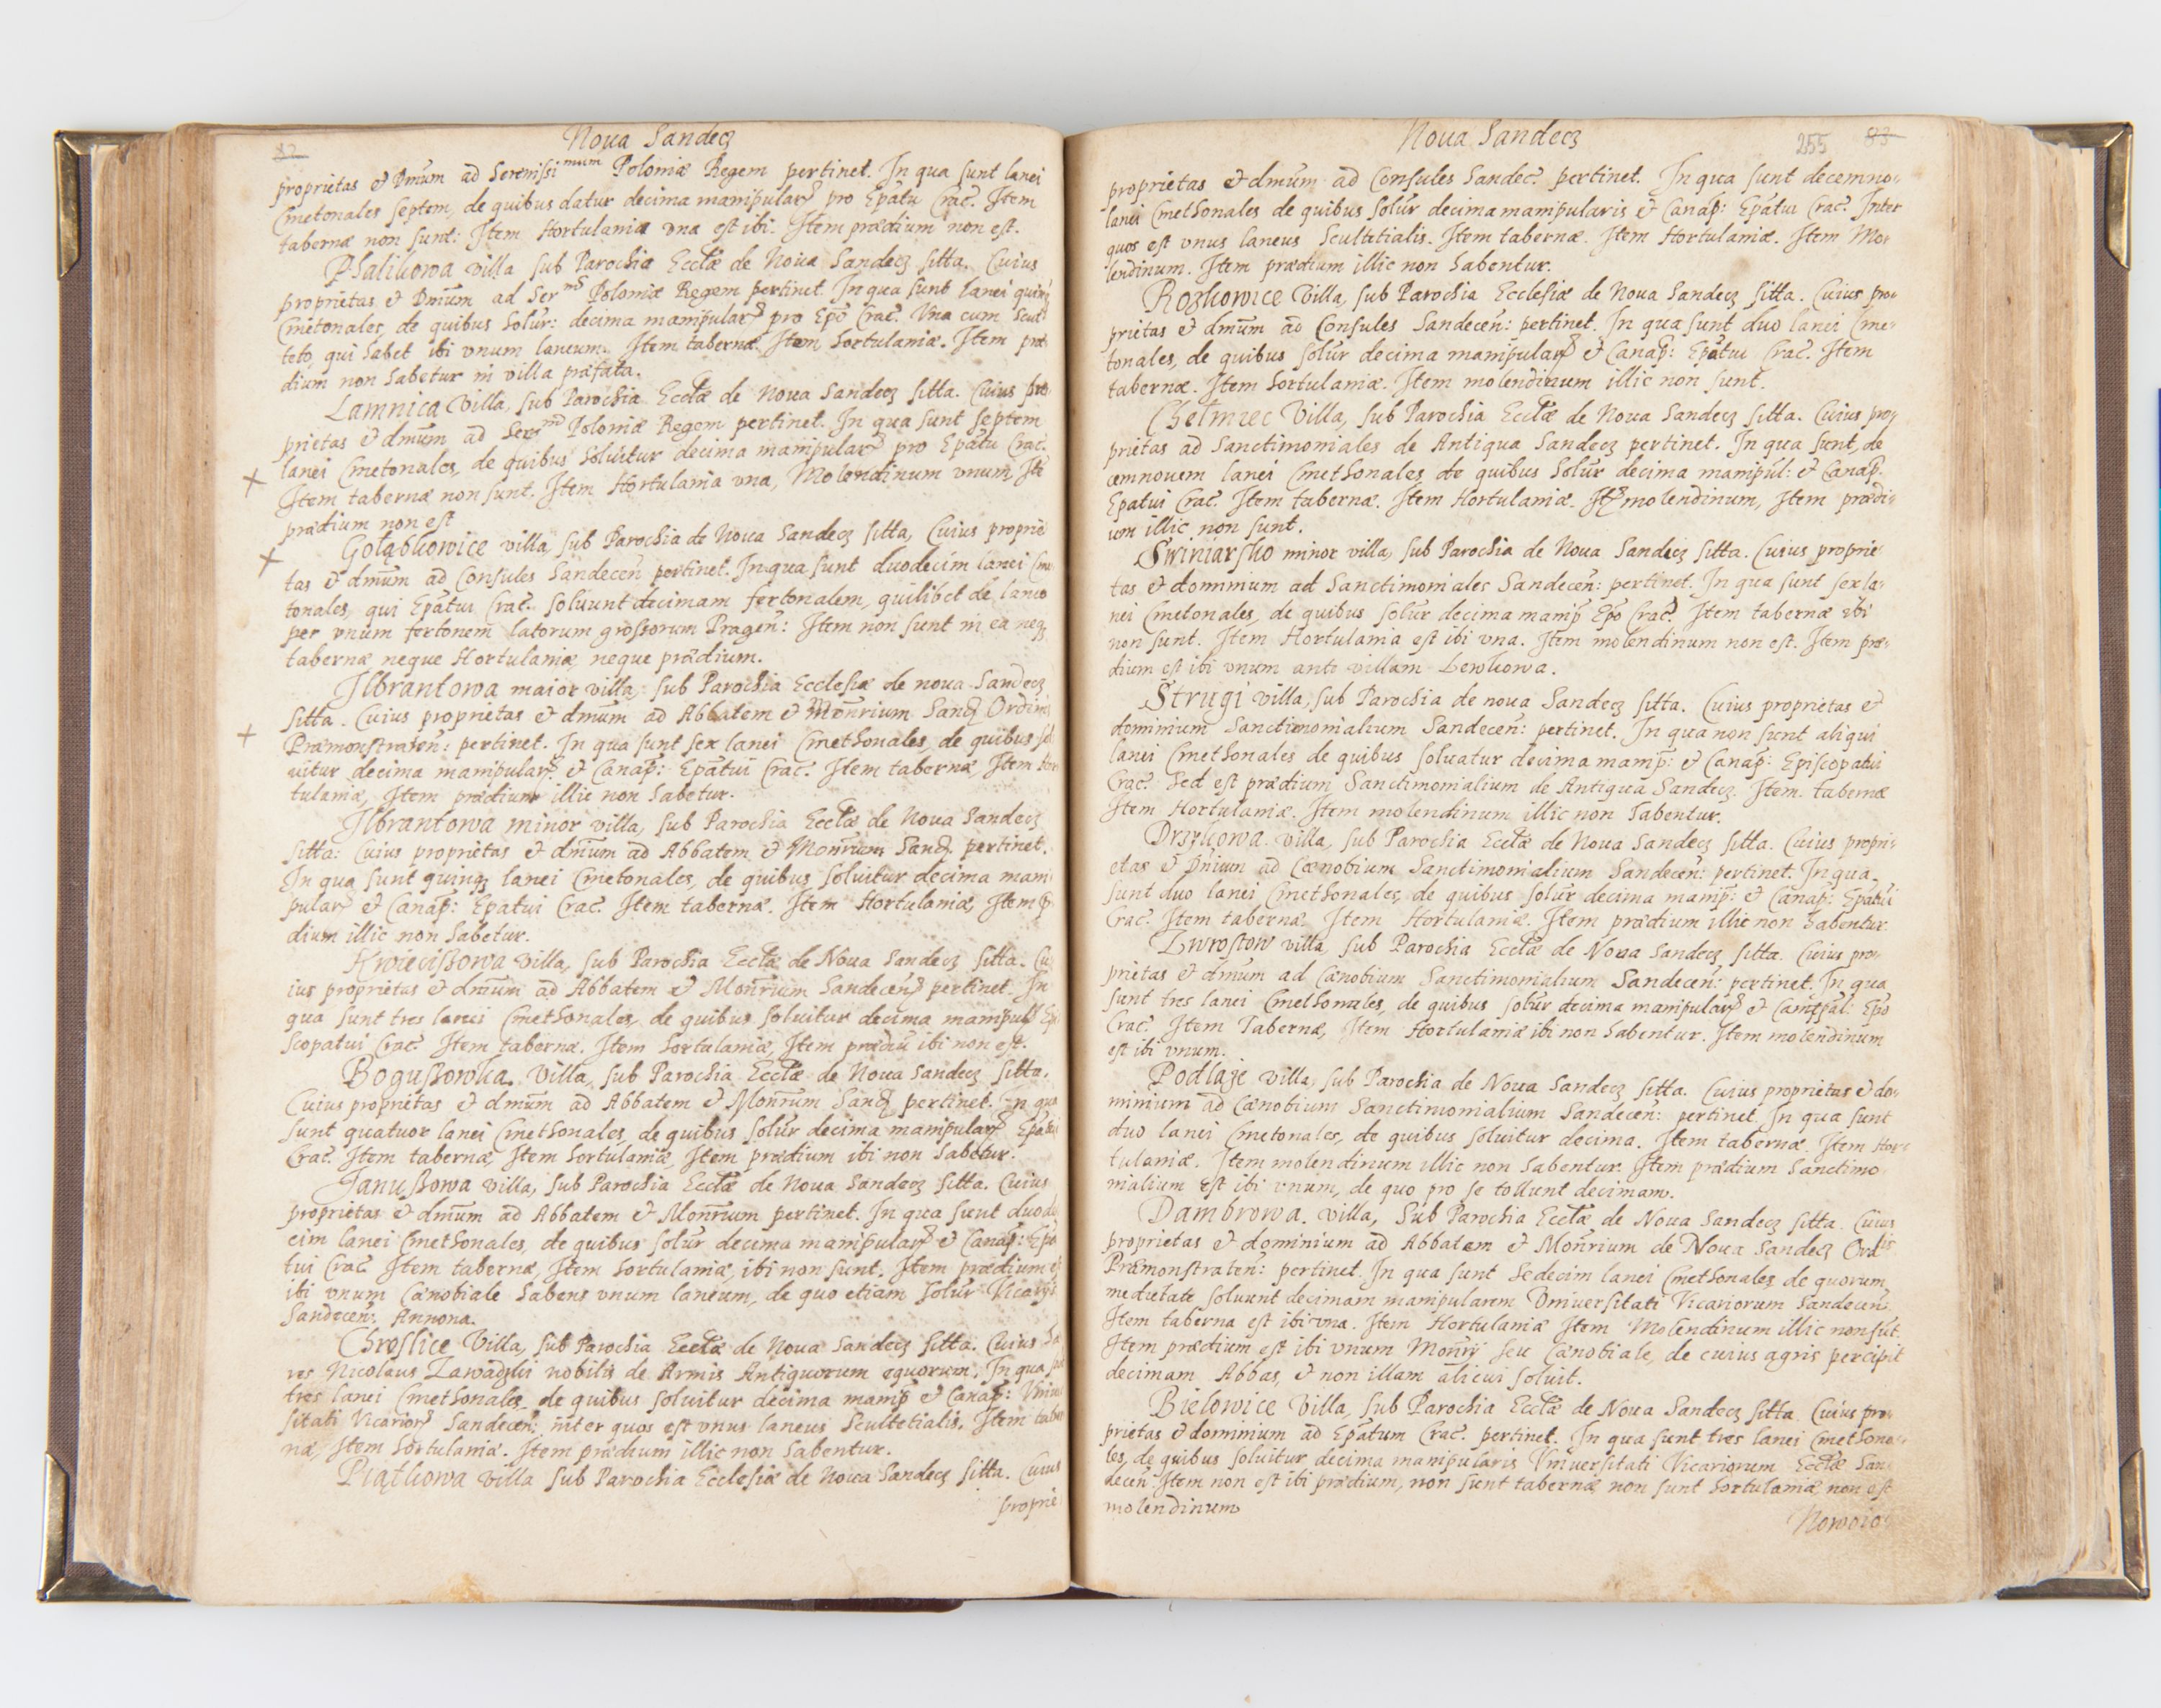 82
Noua Sandecz
proprietas et Dmūm ad Serenissimum Poloniæ Regem pertinet. In qua sunt lanei
Cmetonales septem, de quibus datur decima manipular pro Epātu Crac. Item
tabernæ non sunt: Item Hortulania vna est ibi. Item prædium non est.
Phalikowa villa sub Parochia Ecctæ de Noua Sandecz sitta. Cuius
proprietas et Dmūm ad Ser Poloniæ Regem pertinet. In qua sunt lanei quinq
Cmetonales, de quibus solur: decima manipular pro Epō Crac. Vna cum Scul
teto, qui habet ibi vnum laneum. Item tabernæ. Item hortulaniæ. Item præ
dium non habetur in villa præfata.
Lamnica Villa, sub Parochia Ecctæ de Noua Sandecz sitta. Cuius pro
prietas et dmūm ad Ser Poloniæ Regem pertinet. In qua sunt septem
lanei Cmetonales, de quibus soluitur decima manipular pro Epātu Crac.
Item tabernæ non sunt. Item Hortulania vna, Molendinum vnum, Itē
prædium non est
Gołąbkowice villa, sub Parochia de Noua Sandecz sitta, Cuius proprie
tas et dmūm ad Consules Sandecen̄ pertinet. In qua sunt duodecim lanei Cme
tonales, qui Epātui Crac. soluunt decimam fertonalem, quilibet de laneo
per vnum fertonem latorum grossorum Pragen̄: Item non sunt in ea neq
tabernæ neque Hortulaniæ neque prædium.
Ilbrantowa maior villa, sub Parochia Ecclesiæ de noua Sandecz
sitta. Cuius proprietas et dmūm ad Abbatem et Monrium Sand Ordinis
Præmonstraten̄: pertinet. In qua sunt sex lanei Cmethonales, de quibus sol
uitur decima manipular et Canap̄: Epātui Crac. Item tabernæ, Item Hor
tulaniæ, Item prædium illic non habetur.
Ilbrantowa minor villa, sub Parochia Ecctæ de Noua Sandecz
sitta: Cuius proprietas et dmīum ad Abbatem et Monrium Sand pertinet.
In qua sunt quinq lanei Cmetonales, de quibus soluitur decima mani
pular et Canap̄: Epātui Crac. Item tabernæ. Item Hortulaniæ, Item p
dium illic non habetur.
Kwieciszowa villa, sub Parochia Ecctæ de Noua Sandecz sitta. Cu
ius proprietas et dmīum ad Abbatem et Monrium Sandecen pertinet. In
qua sunt tres lanei Cmethonales, de quibus soluitur decima manipul Epi
scopatui Crac. Item tabernæ. Item hortulaniæ, Item prædiū ibi non est.
Boguszowka. Villa, sub Parochia Ecctæ de Noua Sandecz sitta.
Cuius proprietas et dmūm ad Abbatem et Monrum Sand pertinet. In qua
sunt quatuor lanei Cmethonales, de quibus solur decima manipular Epātui
Crac. Item tabernæ, Item hortulaniæ, Item prædium ibi non habetur.
Januszowa villa, sub Parochia Ecctæ de Noua Sandecz sitta. Cuius
proprietas et dmūm ad Abbatem et Monrum pertinet. In qua sunt duode
cim lanei Cmethonales, de quibus solur decima manipular et Canap̄: Epā
tui Crac Item tabernæ, Item hortulaniæ, ibi non sunt. Item prædium e
ibi vnum Cænobiale habens vnum laneum, de quo etiam solur Vicarijs
Sandecen̄: Annona.
Chroslice Villa, sub Parochia Ecctæ de Noua Sandecz sitta. Cuius hæ
res Nicolaus Zawadzki nobilis de Armis Antiquorum equorum. In qua
tres lanei Cmethonales, de quibus soluitur decima manip̄ et Canap̄: Vniuer
sitati Vicarior Sandecen̄: inter quos est vnus laneus Scultetialis. Item taber
næ, Item hortulaniæ. Item prædium illic non habentur.
Piątkowa villa sub Parochia Ecclesiæ de Noua Sandecz sitta. Cuius
proprie
Noua Sandecz
255 83
proprietas et dmūm ad Consules Sandec. pertinet. In qua sunt decemno
lanei Cmethonales de quibus solur decima manipularis et Canap̄: Epātui Crac. Inter
quos est vnus laneus Scultetialis. Item tabernæ. Item Hortulaniæ. Item Mo
lendinum. Item prædium illic non habentur.
Rozkowice Villa, sub Parochia Ecclesiæ de Noua Sandecz sitta. Cuius pro
prietas et dmūm ad Consules Sandecen̄: pertinet. In qua sunt duo lanei Cme
tonales, de quibus solur decima manipular et Canap̄: Epātui Crac. Item
tabernæ. Item hortulaniæ. Item molendinum illic non sunt.
Chelmiec Villa, sub Parochia Ecctæ de Noua Sandecz sitta. Cuius pro
prietas ad Sanctimoniales de Antiqua Sandecz pertinet. In qua sunt, de
cemnouem lanei Cmethonales, de quibus solur decima manipul: et Canap̄.
Epātui Crac. Item tabernæ. Item Hortulaniæ. It molendinum, Item prædi
um illic non sunt.
Swiniarsko minor villa, sub Parochia de Noua Sandecz sitta. Cuius proprie
tas et dominium ad Sanctimoniales Sandecen̄: pertinet. In qua sunt sex la
nei Cmetonales, de quibus solur decima manip̄ Epō Crac. Item tabernæ ibi
non sunt. Item Hortulania est ibi vna. Item molendinum non est. Item præ
dium est ibi vnum ante villam Lewkowa.
Strugi villa, sub Parochia de noua Sandecz sitta. Cuius proprietas et
dominium Sanctimonialium Sandecen̄: pertinet. In qua non sunt aliqui
lanei Cmethonales de quibus soluatur decima manip̄: et Canap̄: Episcopatui
Crac. Sed est prædium Sanctimonialium de Antiqua Sandecz. Item. tabernæ
Item Hortulaniæ. Item molendinum illic non habentur.
villa, sub Parochia Ecctæ de Noua Sandecz sitta. Cuius propri
etas et Dnium ad Cænobium Sanctimonialium Sandecen̄: pertinet. In qua
sunt duo lanei Cmethonales, de quibus solur decima manip̄: et Canap̄: Epātui
Crac. Item tabernæ, Item Hortulaniæ. Item prædium illic non habentur.
Zwrostow villa, sub Parochia Ecctæ de Noua Sandecz sitta. Cuius pro
prietas et dmūm ad Cænobium Sanctimonialium Sandecen̄: pertinet. In qua
sunt tres lanei Cmethonales, de quibus solur decima manipular et Epō
Crac. Item Tabernæ, Item Hortulaniæ ibi non habentur. Item molendinum
est ibi vnum.
Podlaje villa, sub Parochia de Noua Sandecz sitta. Cuius proprietas et do
minium ad Cænobium Sanctimonialium Sandecen̄: pertinet. In qua sunt
duo lanei Cmetonales, de quibus soluitur decima. Item tabernæ. Item Hor
tulaniæ. Item molendinum illic non habentur. Item prædium Sanctimo
nialium est ibi vnum, de quo pro se tollunt decimam.
Dambrowa. villa, Sub Parochia Ecctæ de Noua Sandecz sitta. Cuius
proprietas et dominium ad Abbatem et Monrium de Noua Sandecz Ordis
Præmonstraten̄: pertinet. In qua sunt Sedecim lanei Cmethonales, de quorum
medietate soluunt decimam manipularem Vniuersitati Vicariorum Sandecen̄.
Item taberna est ibi vna. Item Hortulaniæ Item Molendinum illic non sūt.
Item prædium est ibi vnum Monrij seu Cænobiale, de cuius agris percipit
decimam Abbas, et non illam alicui soluit.
Bielowice Villa, sub Parochia Ecctæ de Noua Sandecz sitta. Cuius pro
prietas et dominium ad Epātum Crac. pertinet. In qua sunt tres lanei Cmethona
les, de quibus soluitur decima manipularis Vniuersitati Vicariorum Ecctæ San
decen̄. Item non est ibi prædium, non sunt tabernæ non sunt hortulaniæ non est
molendinum
Nowoio